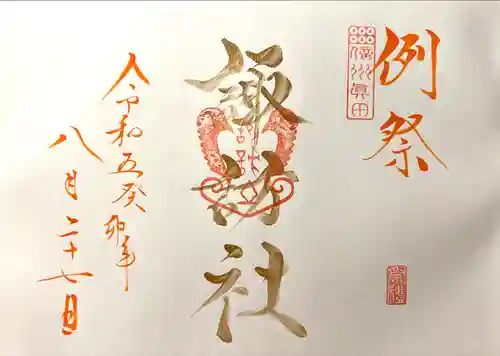 例祭
信州真田
諏訪社
令和五癸卯年
八月二十七日